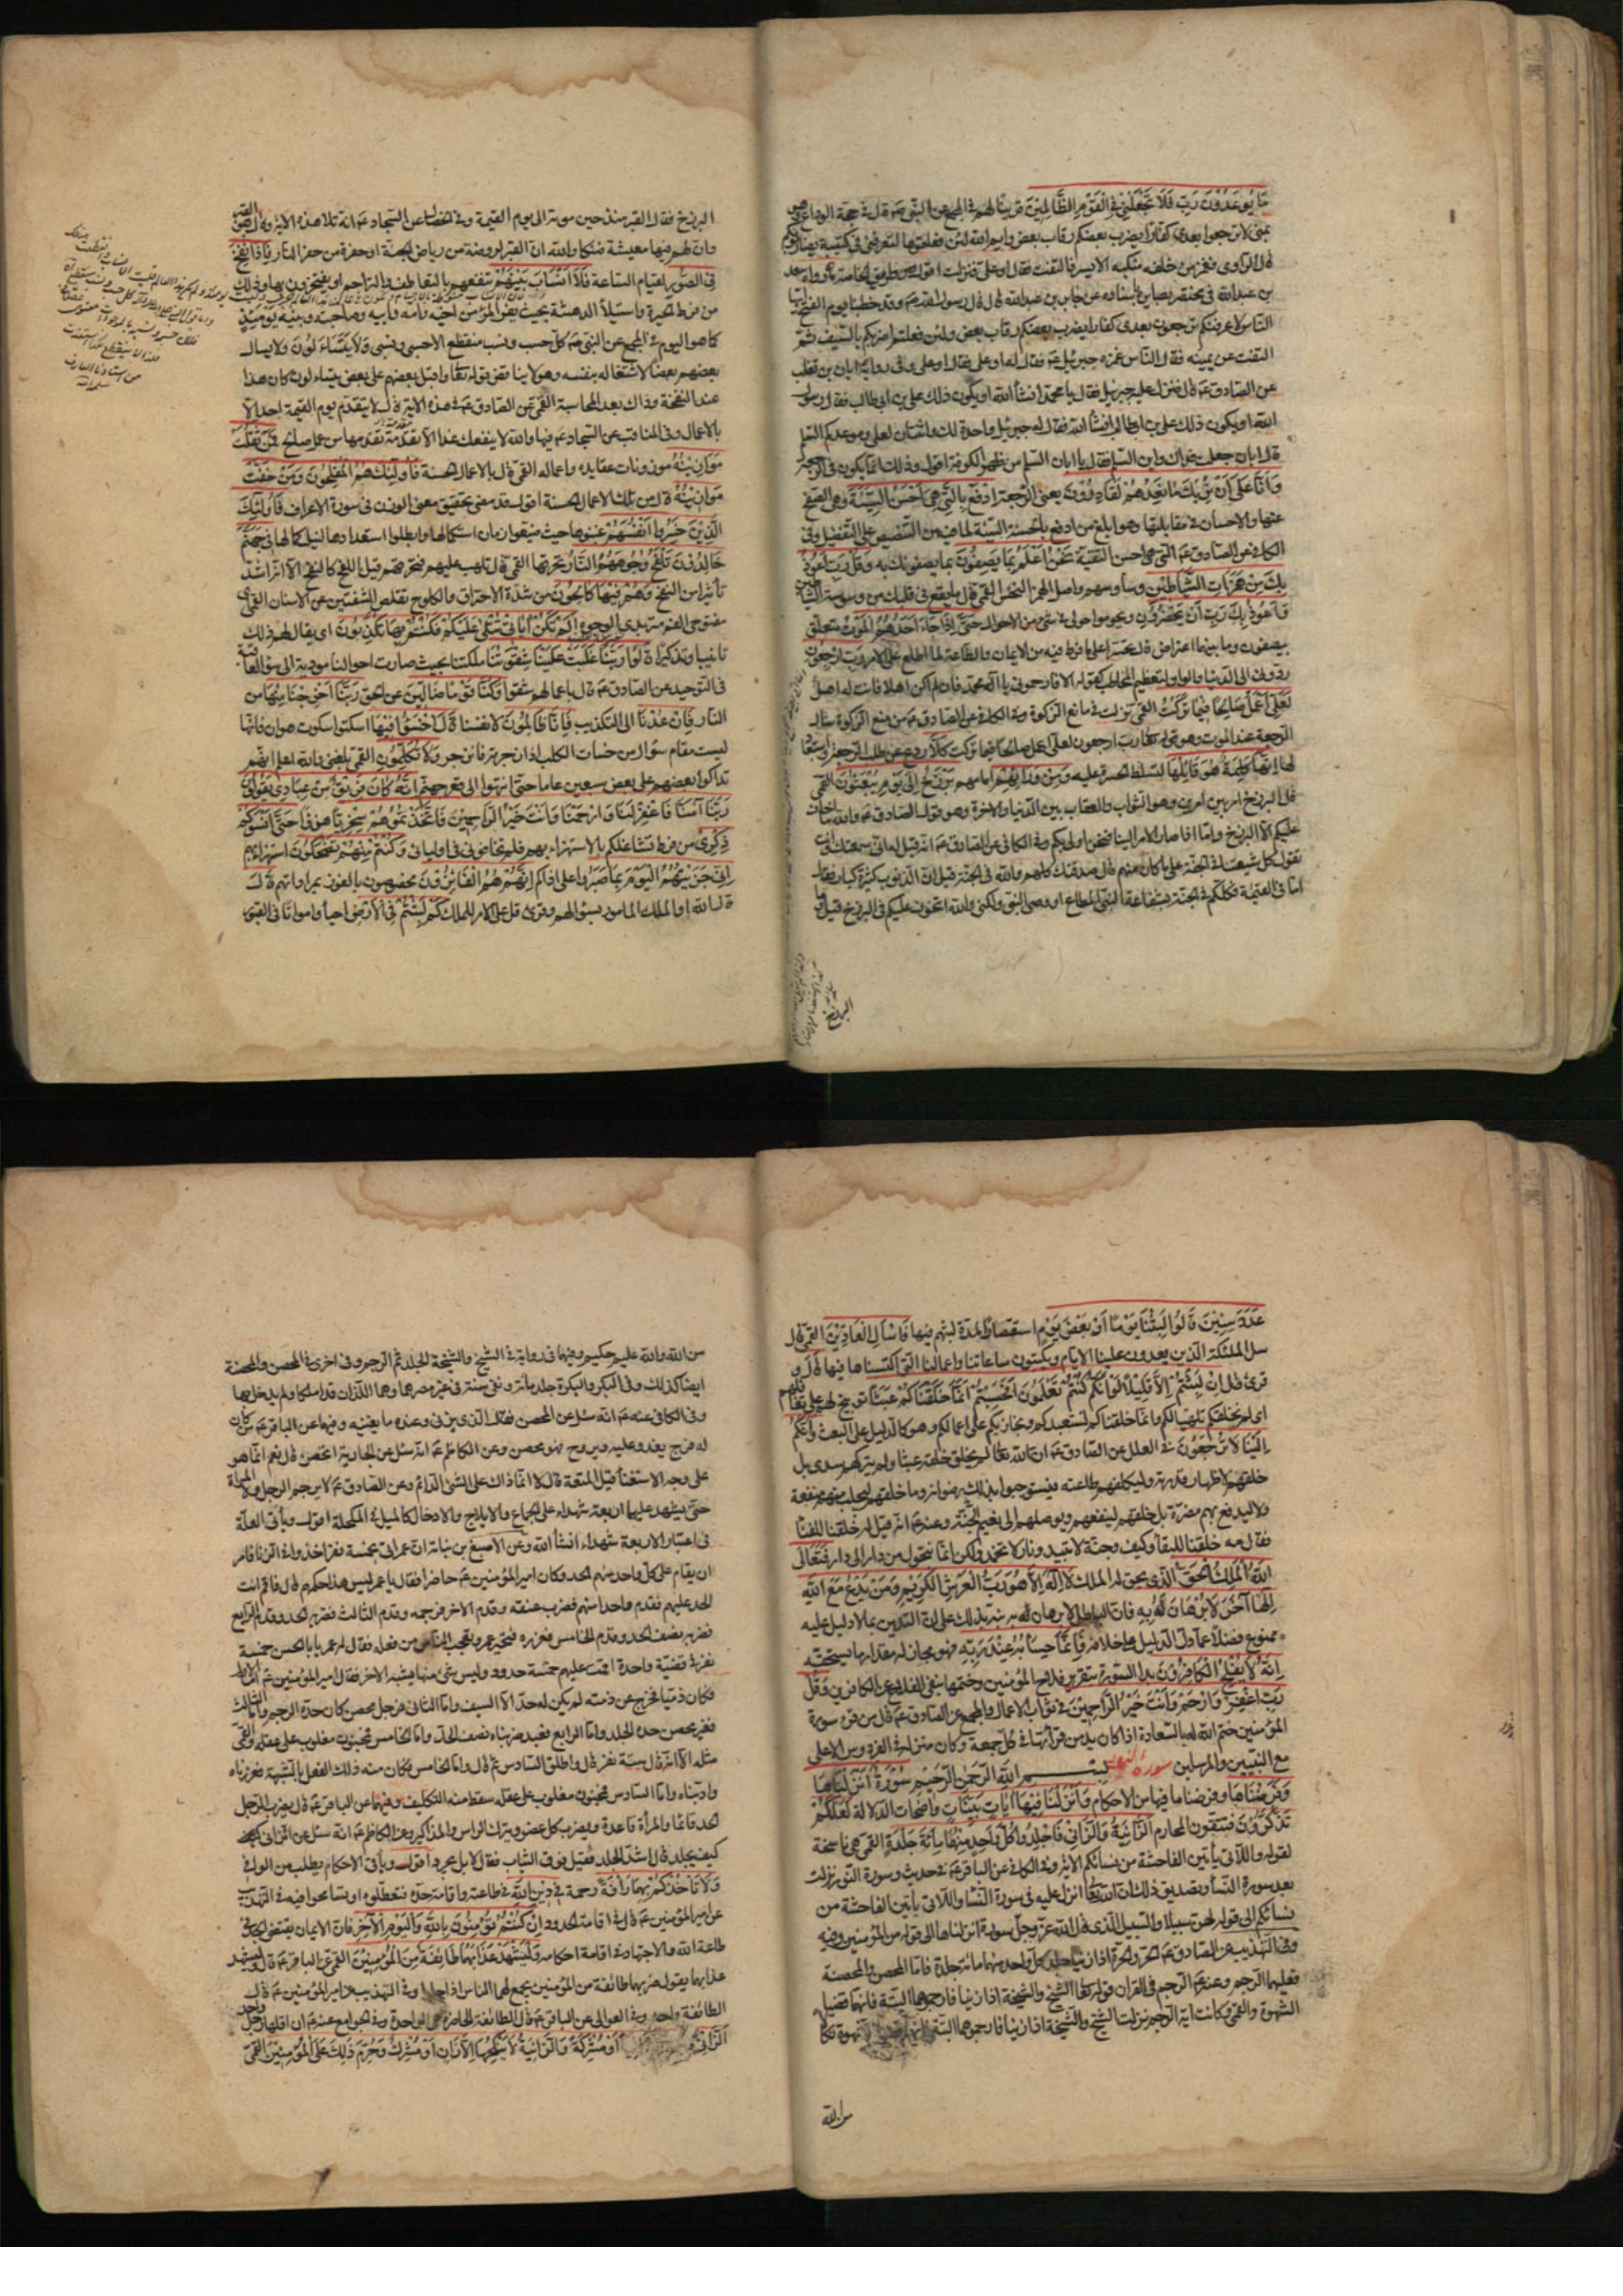 مَا يُوعَدُونَ رَبِّ فَلَا تَجْعَلْنِي فِي الْقَوْمِ الظَّالِمِينَ
بعدى كفارا يضرب بعضكم رقاب بعض وايم الله لئن فعلتموها لتعرفنى فى كتيبة
قال الراوى فغمز من خلفه منكبه الايسر فالتفت فقال او على فنزلت
بن عبد الله قال قال رسول الله ص وقد خطبنا يوم الفتح ايها
الناس لاعرفنكم ترجعون بعدى كفارا يضرب بعضكم رقاب بعض ولئن فعلتم لاضربنكم بالسيف ثم
التفت عن يمينه فقال الناس غمزه جبرئيل ع فقال له او على فقال او على وفى رواية ابان بن تغلب
عن الصادق ع قال فنزل عليه جبرئيل فقال يا محمد انشاء الله او يكون ذلك على بن ابى طالب فقال رسول
الله او يكون ذلك على بن ابى طالب انشاء الله فقال له جبرئيل واحدة لك واثنتان لعلى وموعدكم السلم
قال ابان جعلت فداك واين السلم فقال يا ابان السلم من ظهر الكوفة اقول وذلك انما يكون فى الرجعة
وَإِنَّا عَلَى أَنْ نُرِيَكَ مَا نَعِدُهُمْ لَقَادِرُونَ يعنى الرجعة ادْفَعْ بِالَّتِي هِيَ أَحْسَنُ السَّيِّئَةَ وهى الصفح
عنها والاحسان فى مقابلتها وهو ابلغ من ادفع بالحسنة السيئة لما فيه من التنصيص على التفضيل وفى
الكافى عن الصادق ع التى هى احسن التقية نَحْنُ أَعْلَمُ بِمَا يَصِفُونَ بما يصفونك به وَقُلْ رَبِّ أَعُوذُ
بِكَ مِنْ هَمَزَاتِ الشَّيَاطِينِ وساوسهم واصل الهمز النخس القمى قال ما يقع فى قلبك من وسوسة الشياطين
وَأَعُوذُ بِكَ رَبِّ أَنْ يَحْضُرُونِ ويحوموا حولى فى شئ من الاحوال حَتَّى إِذَا جَاءَ أَحَدَهُمُ الْمَوْتُ متعلق
بيصفون وما بينهما اعتراض قال تحسرا على ما فرط فيه من الايمان والطاعة لما اطلع على الامر رَبِّ ارْجِعُونِ
ردونى الى الدنيا والواو لتعظيم المخاطب كقوله الا فارحمونى يا اله محمد فان لم اكن اهلا فانت له اهل
لَعَلِّي أَعْمَلُ صَالِحًا فِيمَا تَرَكْتُ القمى نزلت فى مانع الزكوة وفى الكافى عن الصادق ع من منع الزكوة سال
الرجعة عند الموت وهو قوله تعالى رب ارجعون لعلى اعمل صالحا فيما تركت كَلَّا ردع عن طلب الرجعة واستبعاد
لها إِنَّهَا كَلِمَةٌ هُوَ قَائِلُهَا لتسلط الحسرة عليه وَمِنْ وَرَائِهِمْ امامهم بَرْزَخٌ إِلَى يَوْمِ يُبْعَثُونَ القمى
قال البرزخ امر بين امرين وهو الثواب والعقاب بين الدنيا والاخرة وهو قول الصادق ع والله ما اخاف
عليكم الا البرزخ واما اذا صار الامر الينا فنحن اولى بكم وفى الكافى عن الصادق ع انه قيل له انى سمعتك وانت
تقول كل شيعتنا فى الجنة على ما كان منهم قال صدقتك كلهم والله فى الجنة قيل ان الذنوب كثيرة كبار فقال
اما فى القيمة فكلكم فى الجنة بشفاعة النبى المطاع او وصى النبى ولكنى والله اتخوف عليكم فى البرزخ قيل وما
البرزخ
البرزخ فقال القبر منذ حين موته الى يوم القيمة وفى الخصال عن السجاد ع انه تلا هذه الاية وقال هو القبر
وان لهم فيها معيشة ضنكا والله ان القبر لروضة من رياض الجنة او حفرة من حفر النار فَإِذَا نُفِخَ
فِي الصُّورِ لقيام الساعة فَلَا أَنْسَابَ بَيْنَهُمْ تنفعهم بالتعاطف والتراحم او يفتخرون بها وذلك
من فرط الحيرة واستيلاء الدهشة بحيث يفر المرء من اخيه وامه وابيه وصاحبته وبنيه يَوْمَئِذٍ
كما هو اليوم فى المجمع عن النبى ص كل حسب ونسب منقطع الا حسبى ونسبى وَلَا يَتَسَاءَلُونَ ولا يسال
بعضهم بعضا لاشتغاله بنفسه وهو لا يناقض قوله تعالى واقبل بعضهم على بعض يتساءلون لان هذا
عند النفخة وذاك بعد المحاسبة القمى عن الصادق ع فى هذه الاية قال لا يتقدم يوم القيمة احد الا
بالاعمال وفى المناقب عن السجاد ع فيها والله لا ينفعك غدا الا تقدمة تقدمها من عمل صالح فَمَنْ ثَقُلَتْ
مَوَازِينُهُ موزونات عقايده واعماله القمى قال بالاعمال الحسنة فَأُولَئِكَ هُمُ الْمُفْلِحُونَ وَمَنْ خَفَّتْ
مَوَازِينُهُ قال من تلك الاعمال الحسنة اقول قد مضى تحقيق معنى الوزن فى سورة الاعراف فَأُولَئِكَ
الَّذِينَ خَسِرُوا أَنْفُسَهُمْ غبنوها حيث ضيعوا زمان استكمالها وابطلوا استعدادها لنيل كمالها فِي جَهَنَّمَ
خَالِدُونَ تَلْفَحُ وُجُوهَهُمُ النَّارُ تحرقها القمى قال تلهب عليهم فتحرقهم قيل اللفح كالنفح الا انه اشد
تأثيرا من النفح وَهُمْ فِيهَا كَالِحُونَ من شدة الاحتراق والكلوح تقلص الشفتين عن الاسنان القمى اى
مفتوحى الفم متربدى الوجوه أَلَمْ تَكُنْ آيَاتِي تُتْلَى عَلَيْكُمْ فَكُنْتُمْ بِهَا تُكَذِّبُونَ اى يقال لهم ذلك
تانيبا وتذكيرا قَالُوا رَبَّنَا غَلَبَتْ عَلَيْنَا شِقْوَتُنَا ملكتنا بحيث صارت احوالنا مودية الى سوء العاقبة
فى التوحيد عن الصادق ع قال باعمالهم شقوا وَكُنَّا قَوْمًا ضَالِّينَ عن الحق رَبَّنَا أَخْرِجْنَا مِنْهَا من
النار فَإِنْ عُدْنَا الى التكذيب فَإِنَّا ظَالِمُونَ لانفسنا قَالَ اخْسَئُوا فِيهَا اسكتوا سكوت هوان فانها
ليست مقام سؤال من خسات الكلب اذا زجرته فانزجر وَلَا تُكَلِّمُونِ القمى بلغنى والله اعلم انهم
تداكوا بعضهم على بعض سبعين عاما حتى انتهوا الى قعر جهنم إِنَّهُ كَانَ فَرِيقٌ مِنْ عِبَادِي يَقُولُونَ
رَبَّنَا آمَنَّا فَاغْفِرْ لَنَا وَارْحَمْنَا وَأَنْتَ خَيْرُ الرَّاحِمِينَ فَاتَّخَذْتُمُوهُمْ سِخْرِيًّا هزوا حَتَّى أَنْسَوْكُمْ
ذِكْرِي من فرط تشاغلكم بالاستهزاء بهم فلم تخافونى فى اوليائى وَكُنْتُمْ مِنْهُمْ تَضْحَكُونَ استهزاء بهم
إِنِّي جَزَيْتُهُمُ الْيَوْمَ بِمَا صَبَرُوا على اذاكم أَنَّهُمْ هُمُ الْفَائِزُونَ مخصوصون بالفوز بمراداتهم قَالَ
قال الله او الملك المامور بسؤالهم وقرئ قل على الامر للملك كَمْ لَبِثْتُمْ فِي الْأَرْضِ احياء وامواتا فى القبور
عَدَدَ سِنِينَ قَالُوا لَبِثْنَا يَوْمًا أَوْ بَعْضَ يَوْمٍ استقصارا لمدة لبثهم فيها فَاسْأَلِ الْعَادِّينَ القمى قال
سل الملئكة الذين يعدون علينا الايام ويكتبون ساعاتنا واعمالنا التى اكتسبناها فيها قَالَ و
قرئ قل إِنْ لَبِثْتُمْ إِلَّا قَلِيلًا لَوْ أَنَّكُمْ كُنْتُمْ تَعْلَمُونَ أَفَحَسِبْتُمْ أَنَّمَا خَلَقْنَاكُمْ عَبَثًا توبيخ لهم على تغافلهم
اى لم نخلقكم تلهيا بكم وانما خلقناكم لنتعبدكم ونجازيكم على اعمالكم وهو كالدليل على البعث وَأَنَّكُمْ
إِلَيْنَا لَا تُرْجَعُونَ فى العلل عن الصادق ع ان الله تعالى لم يخلق خلقه عبثا ولم يتركهم سدى بل
خلقهم لاظهار قدرته وليكلفهم طاعته فيستوجبوا بذلك رضوانه وما خلقهم ليجلب منهم منفعة
ولا ليدفع بهم مضرة بل خلقهم لينفعهم ويوصلهم الى نعيم الجنة وعنه ع انه قيل له خلقنا للفناء
فقال مه خلقنا للبقاء وكيف وجنة لا تبيد ونار لا تخمد ولكن انما نتحول من دار الى دار فَتَعَالَى
اللَّهُ الْمَلِكُ الْحَقُّ الذى يحق له الملك لَا إِلَهَ إِلَّا هُوَ رَبُّ الْعَرْشِ الْكَرِيمِ وَمَنْ يَدْعُ مَعَ اللَّهِ
إِلَهًا آخَرَ لَا بُرْهَانَ لَهُ بِهِ فان الباطل لا برهان له به نبه بذلك على ان التدين بما لا دليل عليه
ممنوع فضلا عما دل الدليل على خلافه فَإِنَّمَا حِسَابُهُ عِنْدَ رَبِّهِ فهو مجازى له مقدار ما يستحقه
إِنَّهُ لَا يُفْلِحُ الْكَافِرُونَ بدأ السورة بتقرير فلاح المؤمنين وختمها بنفى الفلاح عن الكافرين وَقُلْ
رَبِّ اغْفِرْ وَارْحَمْ وَأَنْتَ خَيْرُ الرَّاحِمِينَ فى ثواب الاعمال والمجمع عن الصادق ع قال من قرء سورة
المؤمنين ختم الله له بالسعادة اذا كان يدمن قراءتها فى كل جمعة وكان منزله فى الفردوس الاعلى
مع النبيين والمرسلين سورة النور بسم الله الرحمن الرحيم سُورَةٌ أَنْزَلْنَاهَا
وَفَرَضْنَاهَا وفرضنا ما فيها من الاحكام وَأَنْزَلْنَا فِيهَا آيَاتٍ بَيِّنَاتٍ واضحات الدلالة لَعَلَّكُمْ
تَذَكَّرُونَ فتتقون المحارم الزَّانِيَةُ وَالزَّانِي فَاجْلِدُوا كُلَّ وَاحِدٍ مِنْهُمَا مِائَةَ جَلْدَةٍ القمى هى ناسخة
لقوله واللاتى يأتين الفاحشة من نسائكم الاية وفى الكافى عن الباقر ع فى حديث وسورة النور نزلت
بعد سورة النساء وتصديق ذلك ان الله تعالى انزل عليه فى سورة النساء واللاتى يأتين الفاحشة من
نسائكم الى قوله لهن سبيلا والسبيل الذى قال الله عز وجل سورة انزلناها الى قوله من المؤمنين وفيه
وفى التهذيب عن الصادق ع الحر والحرة اذا زنيا جلد كل واحد منهما مائة جلدة فاما المحصن والمحصنة
فعليهما الرجم وعنه ع الرجم فى القران قوله تعالى الشيخ والشيخة اذا زنيا فارجموهما البتة فانهما قضيا
الشهوة والقمى وكانت اية الرجم نزلت الشيخ والشيخة اذا زنيا فارجموهما البتة
من الله
من الله والله عليم حكيم وفيهما فى رواية فى الشيخ والشيخة الجلد ثم الرجم وفى اخرى فى المحصن والمحصنة
ايضا كذلك وفى البكر والبكرة جلد مائة ونفى سنة فى غير مصرهما وهما اللذان قد املكا ولم يدخل بها
وفى الكافى عنه ع انه سئل عن المحصن فقال الذى يزنى وعنده ما يغنيه وفيهما عن الباقر ع من كان
له فرج يغدو عليه ويروح فهو محصن وعن الكاظم ع انه سئل عن الجارية اتحصن قال نعم انما هو
على وجه الاستغناء قيل المتعة قال لا انما ذاك على الشئ الدائم وعن الصادق ع لا يرجم الرجل والمراة
حتى يشهد عليهما اربعة شهداء على الجماع والايلاج والادخال كالميل فى المكحلة اقول ويأتى العلة
فى اعتبار الاربعة شهداء انشاء الله وعن الاصبغ بن نباتة ان عمر اتى بخمسة نفر اخذوا فى الزنا فامر
ان يقام على كل واحد منهم الحد وكان امير المؤمنين ع حاضرا فقال يا عمر ليس هذا حكمهم قال فاقم انت
الحد عليهم فقدم واحدا منهم فضرب عنقه وقدم الاخر فرجمه وقدم الثالث فضربه الحد وقدم الرابع
فضربه نصف الحد وقدم الخامس فعزره فتحير عمر وتعجب الناس من فعله فقال له عمر يا ابا الحسن خمسة
نفر فى قضية واحدة اقمت عليهم خمسة حدود وليس شئ منها يشبه الاخر فقال امير المؤمنين ع اما الاول
فكان ذميا فخرج عن ذمته لم يكن له حد الا السيف واما الثانى فرجل محصن كان حده الرجم واما الثالث
فغير محصن حده الجلد واما الرابع فعبد ضربناه نصف الحد واما الخامس فمجنون مغلوب على عقله والقمى
مثله الا انه قال ستة نفر قال واطلق السادس ثم قال واما الخامس فكان منه ذلك الفعل بالشبهة فعزرناه
وادبناه واما السادس فمجنون مغلوب على عقله سقط منه التكليف وفيهما عن الباقر ع قال يضرب الرجل
الحد قائما والمرأة قاعدة ويضرب كل عضو ويترك الراس والمذاكير وعن الكاظم ع انه سئل عن الزانى
كيف يجلد قال اشد الجلد فقيل فوق الثياب فقال لا بل يجرد اقول ويأتى الاحكام يطلب من الوافى
وَلَا تَأْخُذْكُمْ بِهِمَا رَأْفَةٌ رحمة فِي دِينِ اللَّهِ فى طاعته واقامة حده فتعطلوه او تسامحوا فيه فى التهذيب
عن امير المؤمنين ع قال فى اقامة الحدود إِنْ كُنْتُمْ تُؤْمِنُونَ بِاللَّهِ وَالْيَوْمِ الْآخِرِ فان الايمان يقتضى الجد فى
طاعة الله والاجتهاد فى اقامة احكامه وَلْيَشْهَدْ عَذَابَهُمَا طَائِفَةٌ مِنَ الْمُؤْمِنِينَ القمى عن الباقر ع قال وليشهد
عذابهما يقول ضربهما طائفة من المؤمنين يجمع لهما الناس اذا جلدوا وفى التهذيب عن امير المؤمنين ع قال
الطائفة واحد وفى العوالى عن الباقر ع قال الطائفة الحاضرة هى الواحدة وفى الجوامع عنه ع ان اقلها رجل واحد
الزَّانِي أَوْ مُشْرِكَةً وَالزَّانِيَةُ لَا يَنْكِحُهَا إِلَّا زَانٍ أَوْ مُشْرِكٌ وَحُرِّمَ ذَلِكَ عَلَى الْمُؤْمِنِينَ القمى